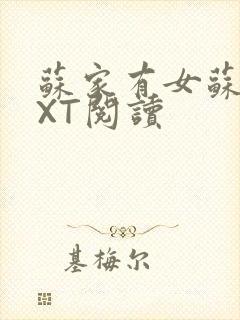 蘇家有女蘇
XT閱讀
基梅尔